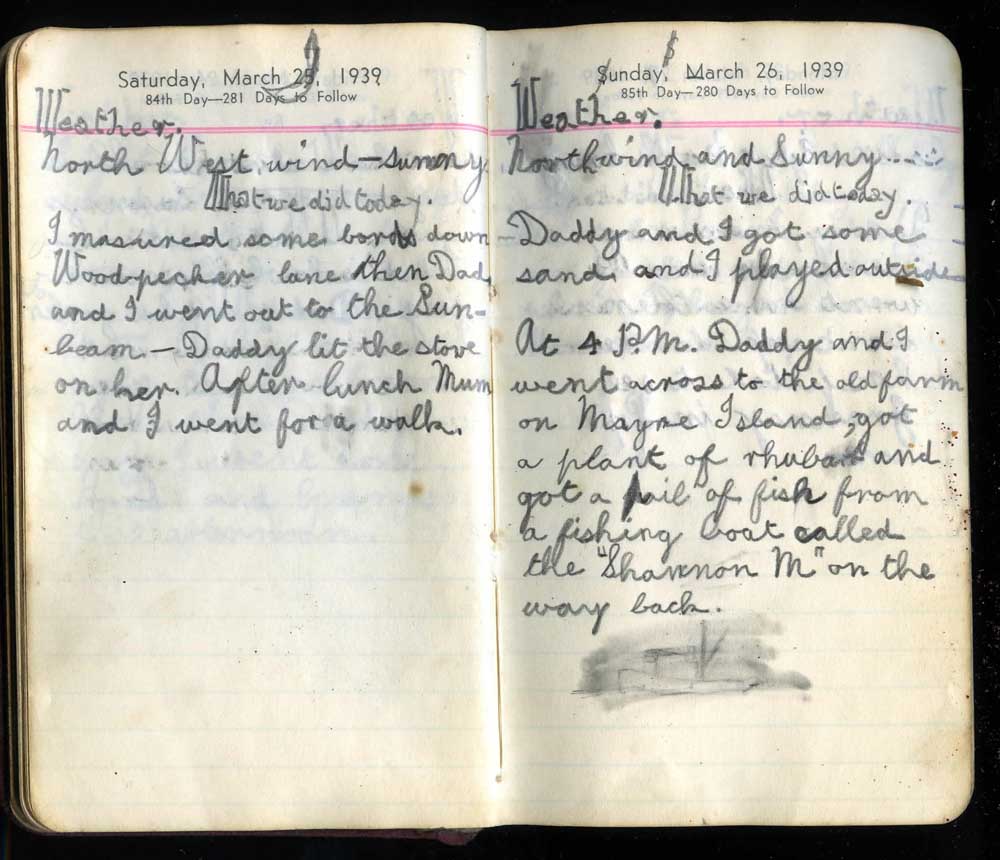 Saturday, March 25, 1939
84th Day—281 Days to Follow
Weather.
North West wind—sunny
What we did today.
I masured some bords down
Wood-pecker lane then Dad
and I went out to the Sun-
beam — Daddy lit the stove
on her. After lunch Mum
and I went for a walk.
Sunday, March 26, 1939
85th Day—280 Days to Follow
Weather.
North wind and Sunny....
What we did today.
Daddy and I got some
sand and I played outside
At 4 P.M. Daddy and I
went across to the old farm
on Mayne Island, got
a plant of rhubarb and
got a pail of fish from
a fishing boat called
the "Shannon M" on the
way back.